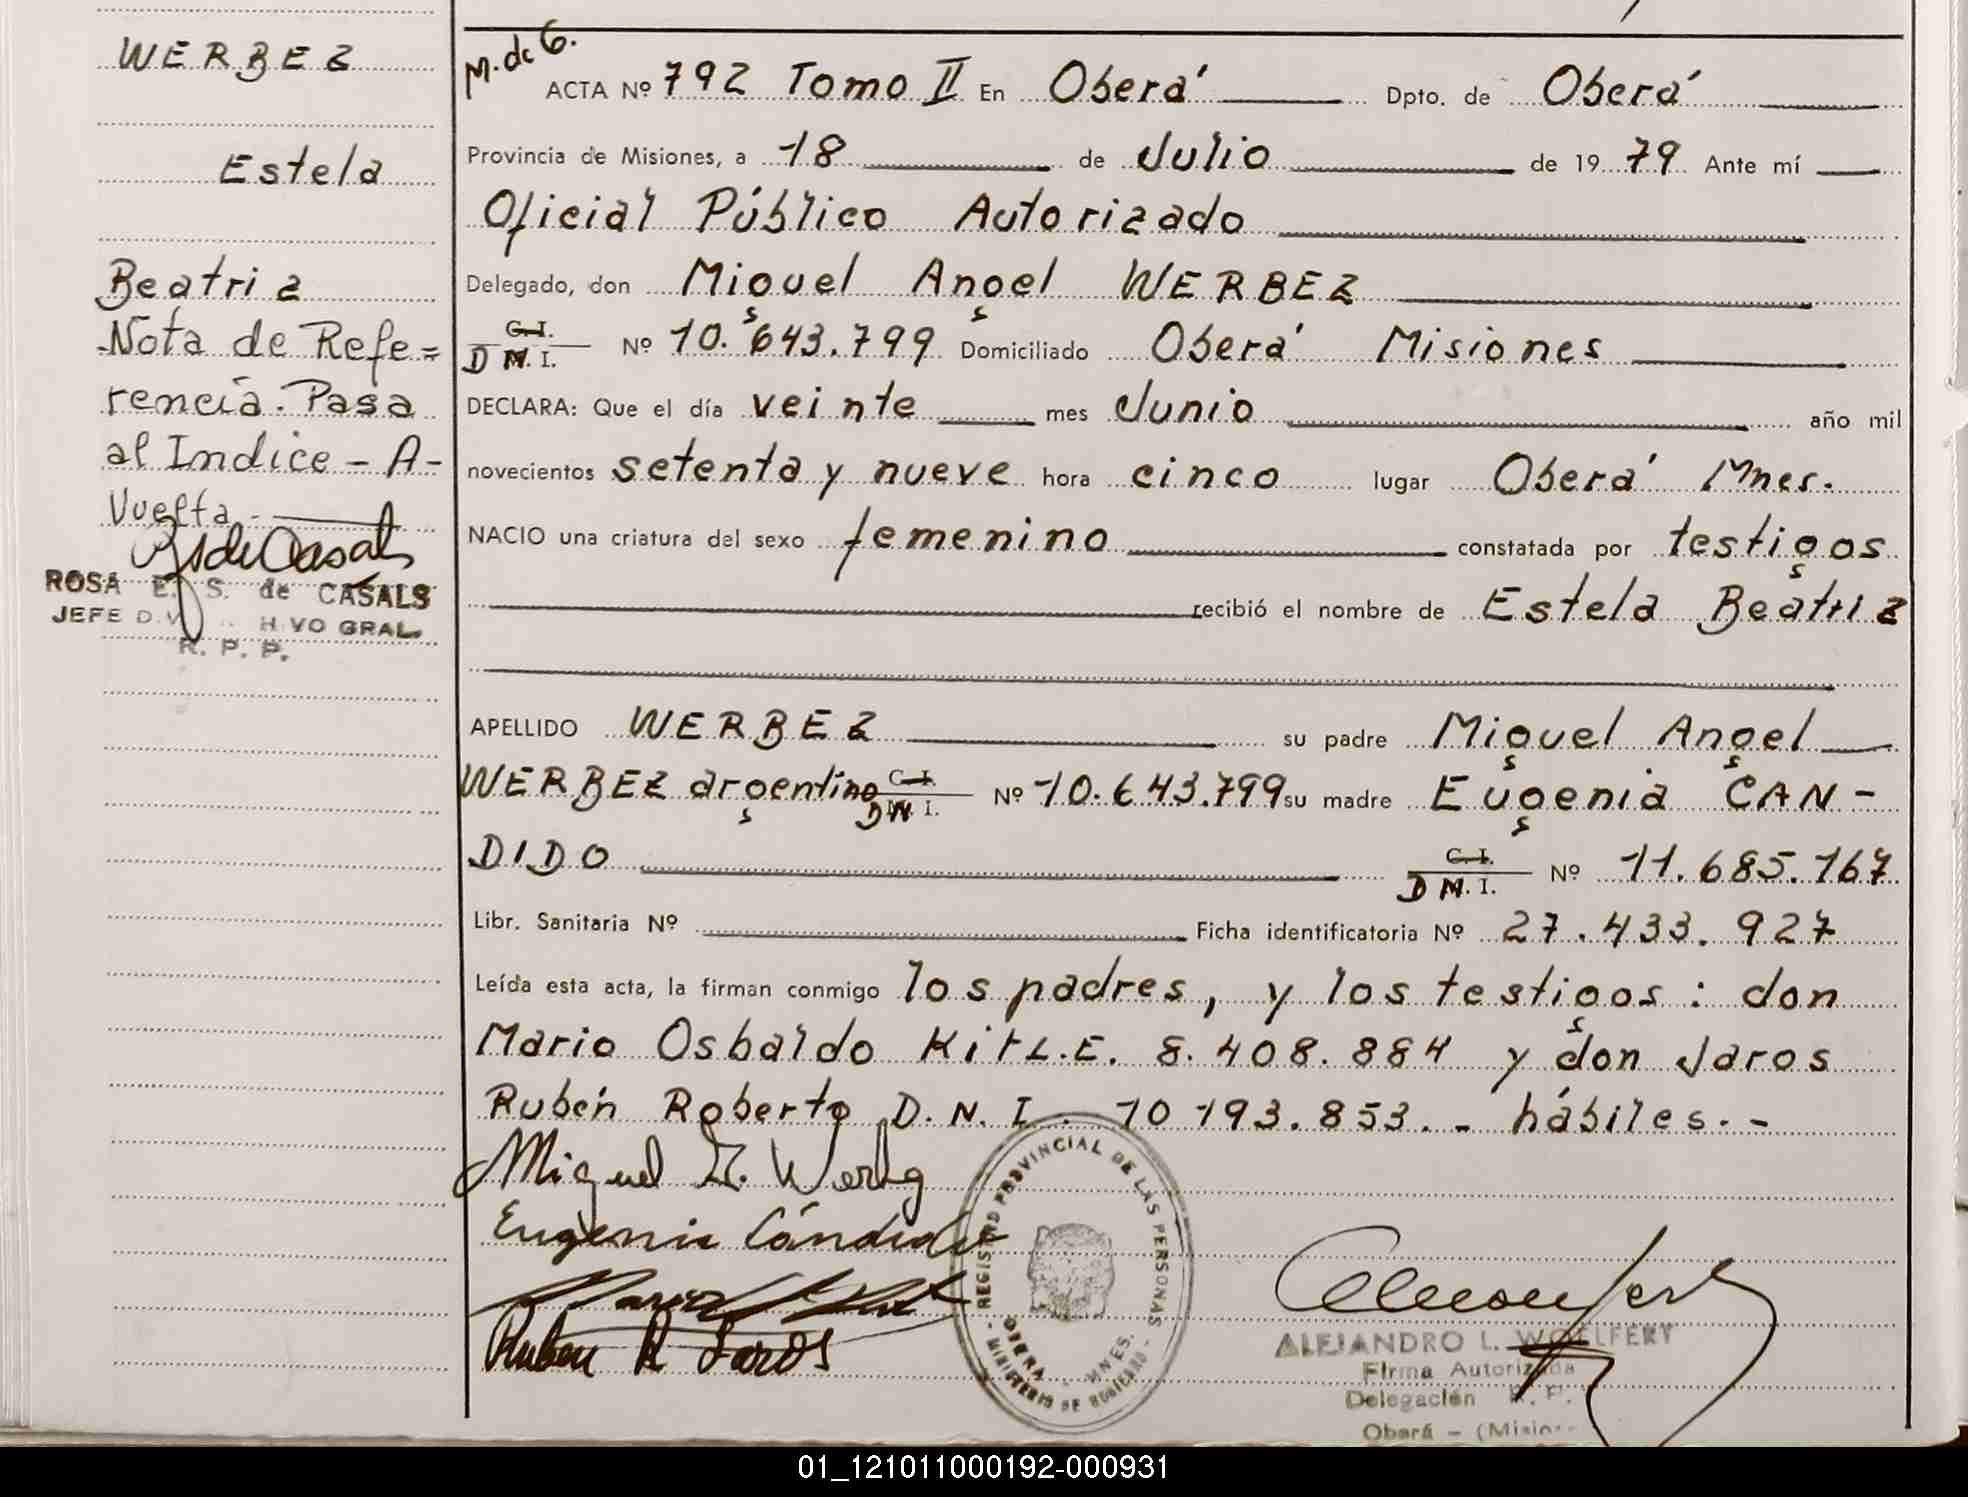 WERBEZ
Estela
Beatriz
Nota de Refe=
rencia. Pasa
al Indice - A-
Vuelta.-
ROSA E. S. de CASALS
JEFE
GRAL.
R. P. P.
M. de G.
ACTA Nº 792 Tomo II En Oberá Dpto. de Oberá
Provincia de Misiones, a 18 de Julio de 1979 Ante mí
Oficial Público Autorizado
Delegado, don Miguel Angel WERBEZ
C. I.
D N. I. Nº 10.643.799 Domiciliado Oberá Misiones
DECLARA: Que el día veinte mes Junio año mil
novecientos setenta y nueve hora cinco lugar Oberá Mnes.
NACIO una criatura del sexo femenino constatada por testigos
recibió el nombre de Estela Beatriz
APELLIDO WERBEZ su padre Miguel Angel
WERBEZ argentino C. I. D N. I. Nº 10.643.799 su madre Eugenia CAN-
DIDO C. I. D N. I. Nº 11.685.167
Libr. Sanitaria Nº Ficha identificatoria Nº 27.433.927
Leída esta acta, la firman conmigo los padres, y los testigos: don
Mario Osbaldo Kit L.E. 8.408.884 y don Jaros
Rubén Roberto D.N.I. 10 193.853.- hábiles.-
Miguel A. Werbez
Eugenia Cándido
Ruben R Jaros
REGISTRO PROVINCIAL DE LAS PERSONAS
OBERA - MNES.
MINISTERIO DE GOBIERNO
ALEJANDRO L. WOELFERT
Firma Autorizada
Delegación R. P.
Oberá - (Misio
01_121011000192-000931